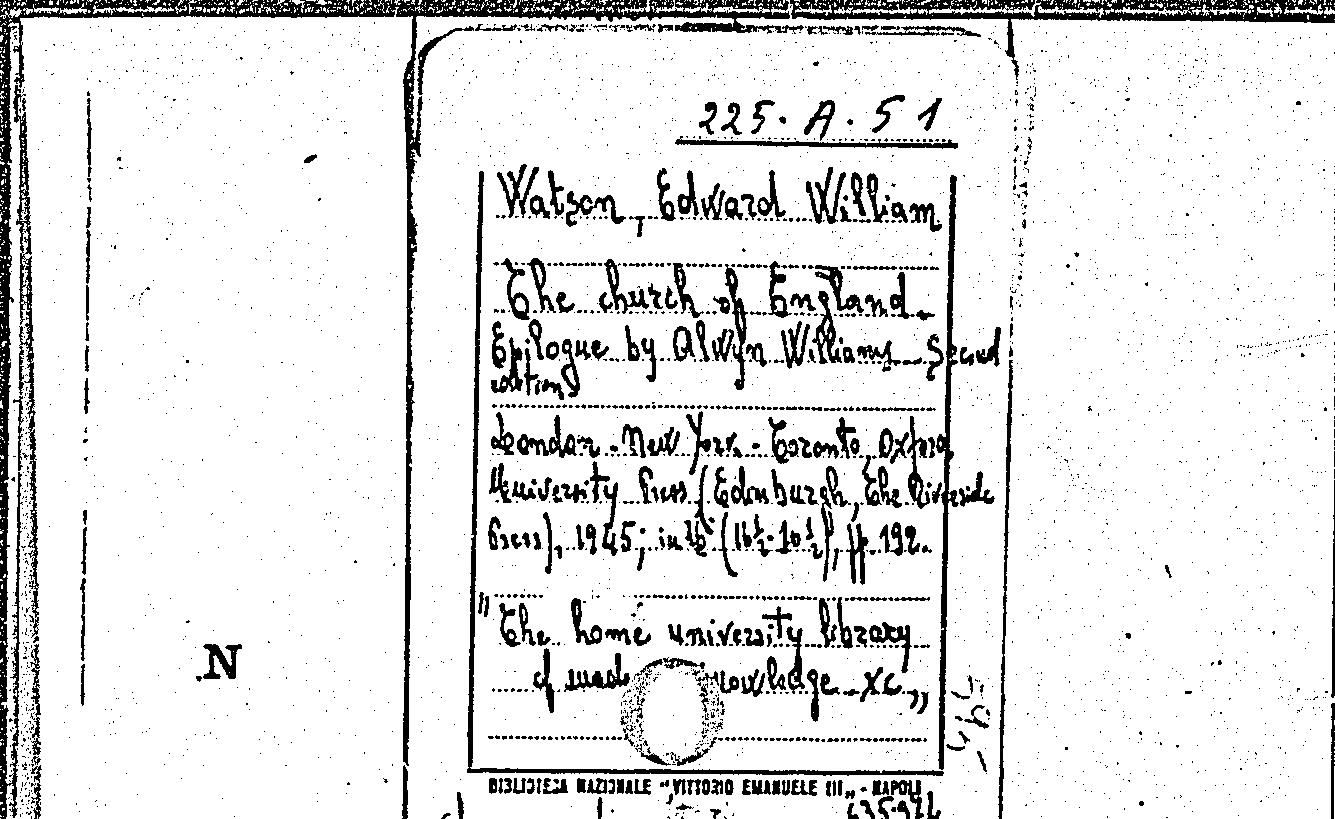 225. A. 51
Watson, Edward William
The church of England.
Epilogue by Alwyn Williams. Second
edition
London - New York - Toronto, Oxford
University Press (Edinburgh, The Riverside
Press), 1945; in 16° (16½·10½), pp. 192.
"The home university library
of knowledge - XC"
N
BIBLIOTECA NAZIONALE "VITTORIO EMANUELE III" - NAPOLI